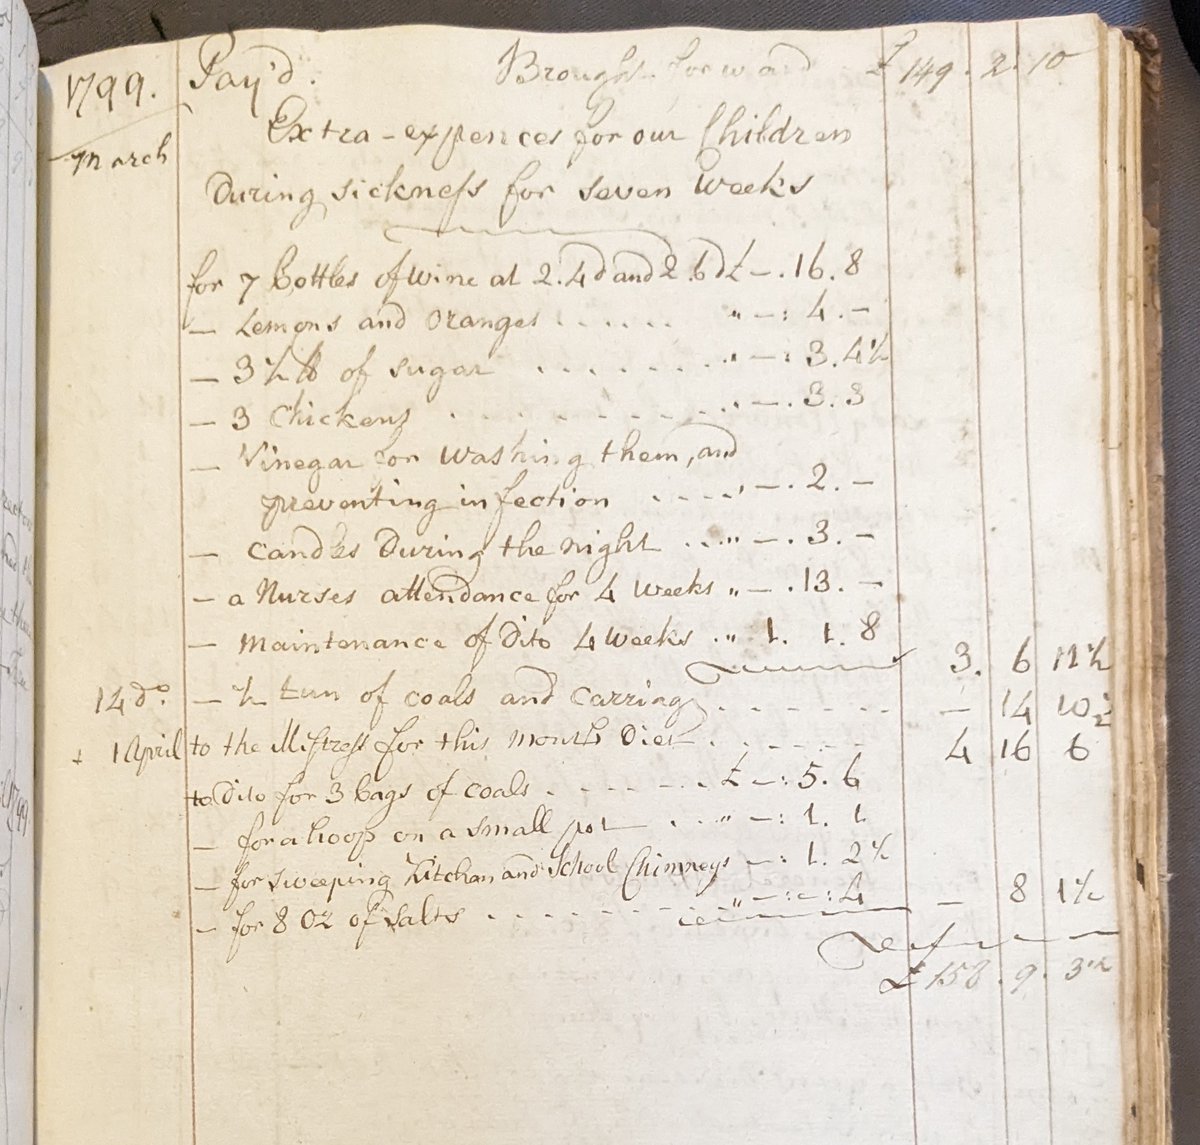 1799. Pay'd. Brought forward £ 149. 2. 10
March Extra-expences for our Children
During sickness for seven Weeks
for 7 bottles of Wine at 2.4d and 2.6d £ —. 16. 8
— Lemons and Oranges ...... " —: 4. —
— 3 ½ lb of sugar ........ " —: 3. 4½
— 3 Chickens ........ " —. 3. 3
— Vinegar for Washing them, and
preventing infection ..... —. 2. —
— Candles During the night ... " —. 3. —
— a Nurses attendance for 4 Weeks " —. 13. —
— Maintenance of Dito 4 Weeks .. " 1. 1. 8
3. 6 11½
14 do. — ½ tun of coals and Carring ........ — 14 10½
1 April to the Mistress for this Months Diet ....... 4 16 6
to Dito for 3 bags of coals ....... £ —: 5. 6
— for a hoop on a small pot ... " —: 1. 1
— for sweeping Kitchan and School Chimneys —: 1. 2½
— for 8 Oz of Salts ........ " —: –: 4 — 8 1½
£ 158. 9. 3½